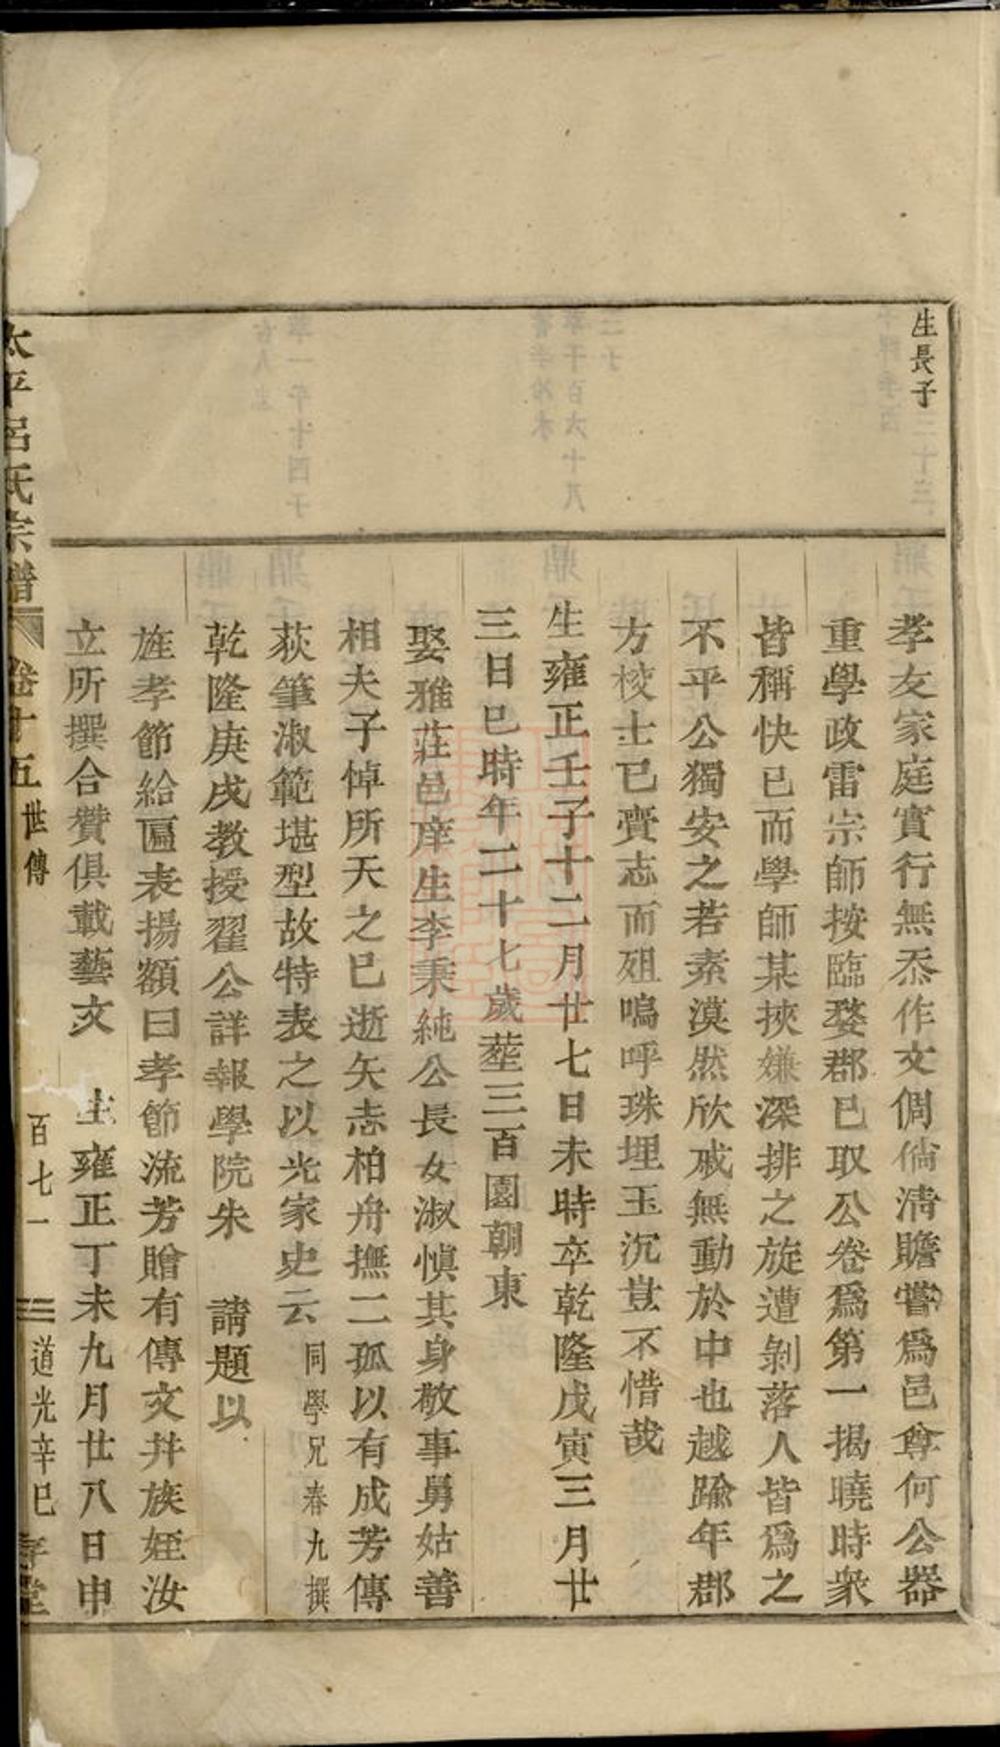 生長子
孝友家庭實行無忝作文倜倘清贍嘗爲邑尊何公器
重學政雷宗師按臨婺郡已取公卷爲第一揭曉時衆
皆稱快已而學師某挾嫌深排之旋遭剝落人皆爲之
不平公獨安之若素漠然欣戚無動於中也越踰年郡
方校士已賫志而殂嗚呼珠埋玉沉豈不惜哉
生雍正壬子十二月廿七日未時卒乾隆戊寅三月廿
三日巳時年二十七歲塟三百園朝東
娶雅莊邑庠生李秉純公長女淑慎其身敬事舅姑善
相夫子悼所天之已逝矢志柏舟撫二孤以有成芳傳
荻筆淑範堪型故特表之以光家史云 同學兄春九撰
乾隆庚戌教授翟公詳報學院朱 請題以
旌孝節給匾表揚額曰孝節流芳贈有傳文并族姪汝
立所撰合贊俱載藝文 生雍正丁未九月廿八日申
太平呂氏宗譜 卷十五 世傳 百七一 道光辛巳 堂